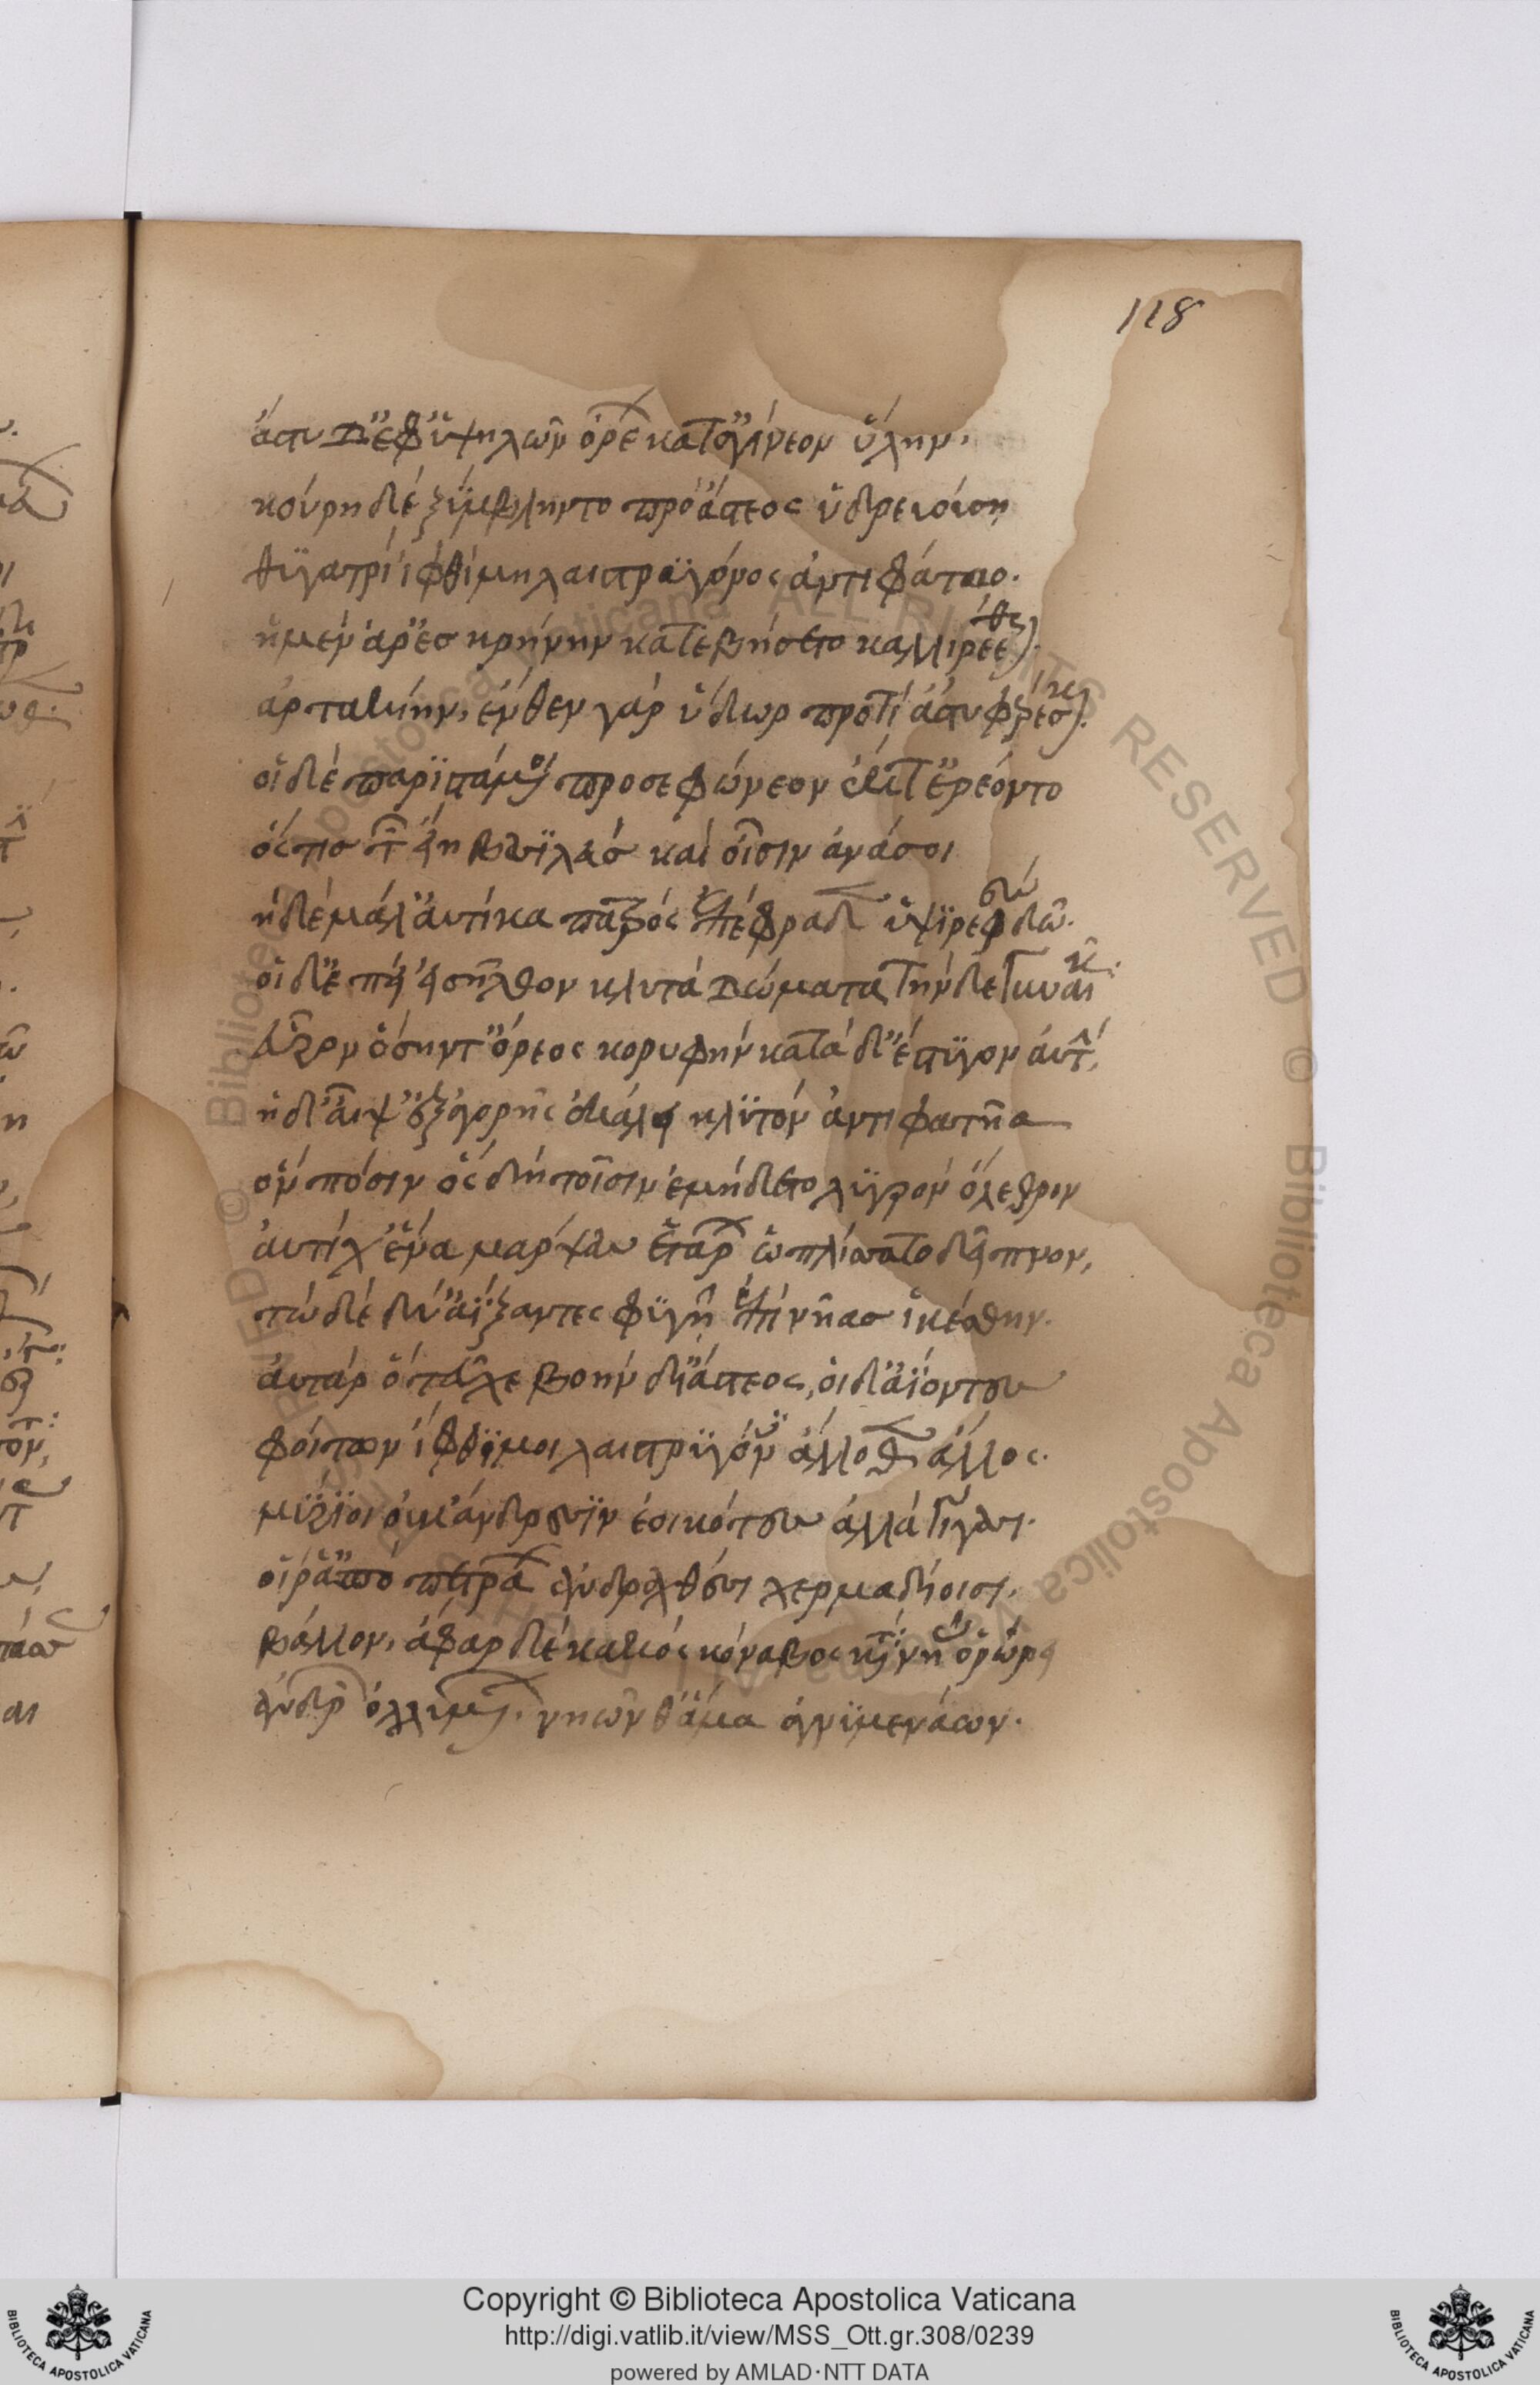 118
ἄστυ δ' ἀφ' ὑψηλῶν ὀρέων καταγίνεον ὕλην.
κούρη δὲ ξύμβληντο πρὸ ἄστεος ὑδρευούση
θυγατρὶ ἰφθίμη λαιστρυγόνος ἀντιφάταο.
ἡ μὲν ἄρ' ἐς κρήνην κατεβήσετο καλλιρέεθρον
ἀρτακίην, ἔνθεν γὰρ ὕδωρ προτὶ ἄστυ φέρεσκον.
οἱ δὲ παριστάμενοι προσεφώνεον ἔκ τ' ἐρέοντο
ὅς τις τῶνδ' εἴη βασιλεὺς καὶ οἷσιν ἀνάσσοι
ἡ δὲ μάλ' αὐτίκα πατρὸς ἐπέφραδεν ὑψερεφὲς δῶ.
οἱ δ' ἐπεὶ εἰσῆλθον κλυτὰ δώματα, τὴν δὲ γυναῖκα
εὗρον ὅσην τ' ὄρεος κορυφὴν κατὰ δ' ἔστυγον αὐτήν,
ἡ δ' αἶψ' ἐξ ἀγορῆς ἐκάλει κλυτὸν ἀντιφατῆα
ὃν πόσιν ὃς δὴ τοῖσιν ἐμήδετο λυγρὸν ὄλεθρον
αὐτίχ' ἕνα μάρψας ἑτάρων ὡπλίσατο δεῖπνον,
τὼ δὲ δύ' ἀΐξαντες φυγῆ ἐπὶ νῆας ἱκέσθην.
αὐτὰρ ὁ τεῦχε βοὴν δι' ἄστεος, οἱ δ' ἀΐοντες
φοίτων ἴφθιμοι λαιστρυγόνες ἄλλοθεν ἄλλος.
μυρίοι οὐκ ἄνδρεσσιν ἐοικότες ἀλλὰ γίγασι.
οἵ ῥ' ἀπὸ πετράων ἀνδραχθέσι χερμαδίοισι.
βάλλον, ἄφαρ δὲ κακὸς κόναβος κατὰ νῆας ὀρώρει
ἀνδρῶν ὀλλυμένων. νηῶν θ' ἅμα ἀγνυμενάων.
Copyright © Biblioteca Apostolica Vaticana
http://digi.vatlib.it/view/MSS_Ott.gr.308/0239
powered by AMLAD·NTT DATA